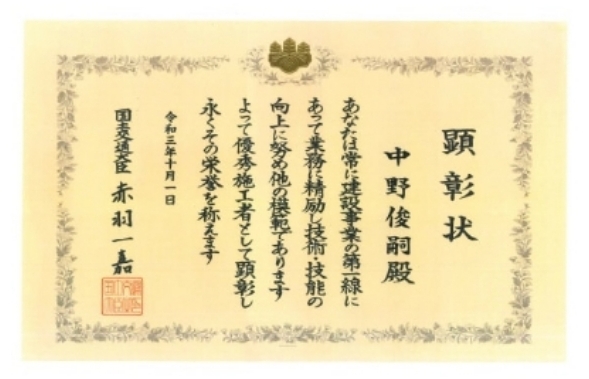 顕彰状
中野俊嗣殿
あなたは常に建設事業の第一線に
あって業務に精励し技術・技能の
向上に努め他の模範であります
よって優秀施工者として顕彰し
永くその栄誉を称えます
令和三年十月一日
国土交通大臣 赤羽一嘉